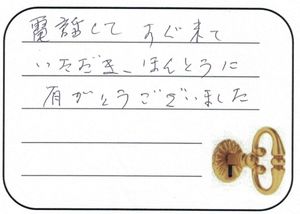 電話して すぐ来て
いただき、ほんとうに
有がとうございました